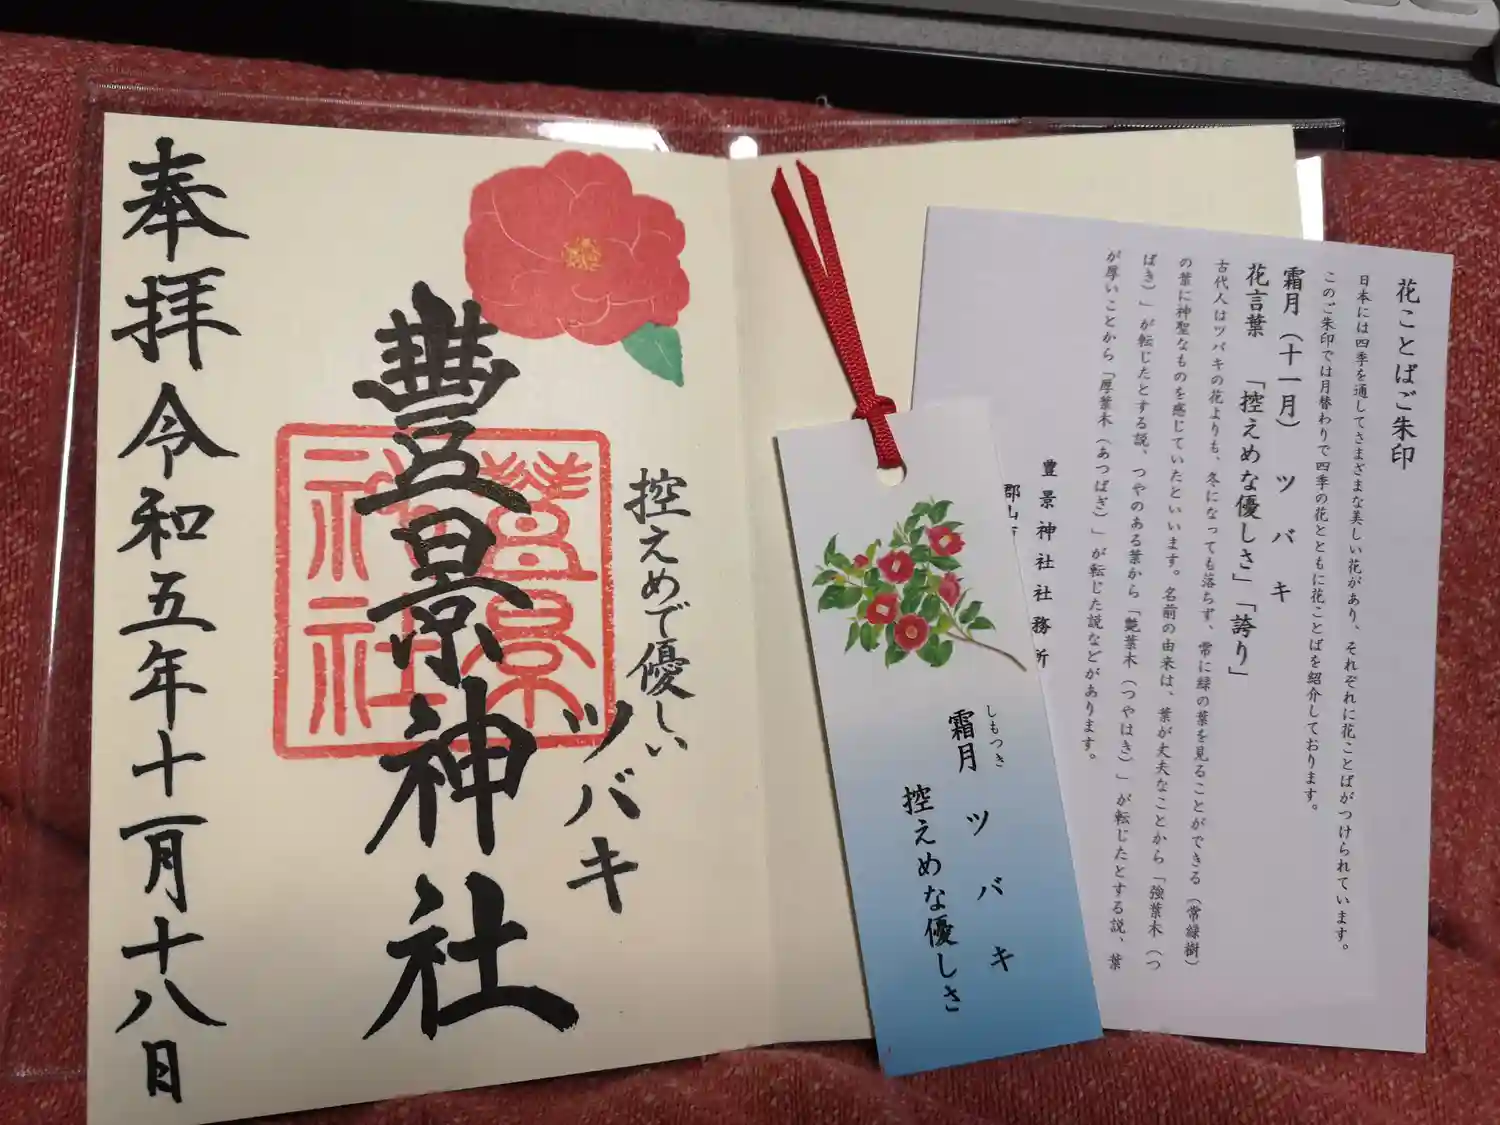 奉拝 令和五年十一月十八日
豊景神社
豊景
神社
控えめで優しい
ツバキ
霜月 ツバキ
しもつき
控えめな優しさ
花ことばご朱印
日本には四季を通してさまざまな美しい花があり、それぞれに花ことばがつけられています。
このご朱印では月替わりで四季の花とともに花ことばを紹介しております。
霜月（十一月） ツバキ
花言葉 「控えめな優しさ」「誇り」
古代人はツバキの花よりも、冬になっても落ちず、常に緑の葉を見ることができる（常緑樹）
の葉に神聖なものを感じていたといいます。名前の由来は、葉が丈夫なことから「強葉木（つ
ばき）」が転じたとする説、つやのある葉から「艶葉木（つやはき）」が転じたとする説、葉
が厚いことから「厚葉木（あつばき）」が転じた説などがあります。
豊景神社社務所
郡山